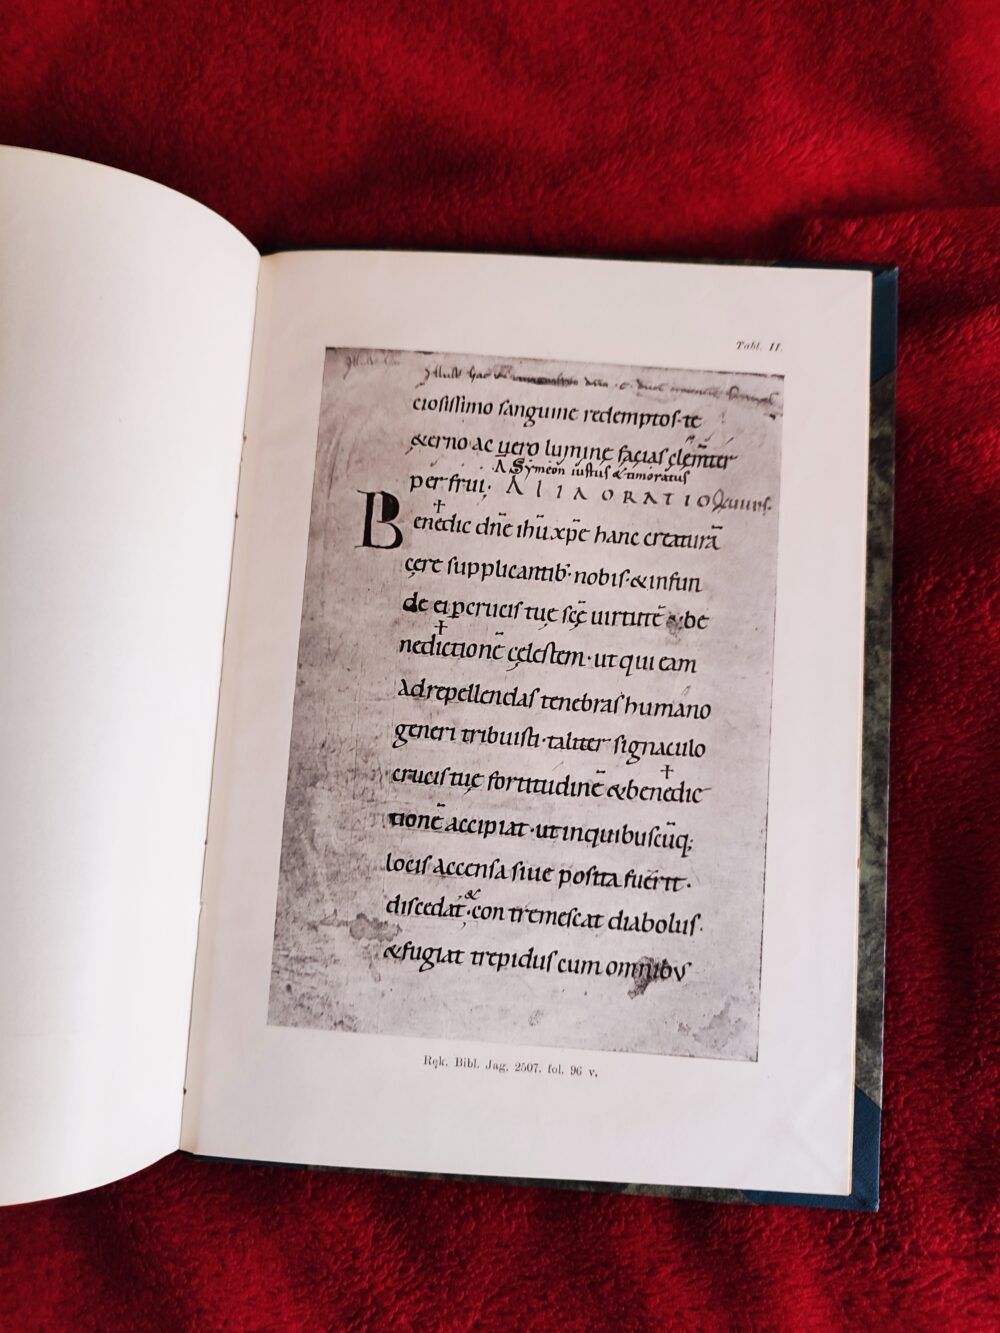 Tabl. II.
ciosissimo sanguine redemptos·te
&erno ac uero lumine facias clem̄ter
A Symeon iustus & timoratus
per frui· ALIA ORATIO
Benedic dn̄e ihū xp̄e hanc creaturā
cęre supplicantib; nobis·&infun
de ei p crucis tuę scę̄ uirtutē &be
nedictionē cęlestem·ut qui eam
Ad repellendas tenebras humano
generi tribuisti·taliter signaculo
crucis tuę fortitudinē &benedic
tionē accipiat·ut inquibuscūq;
locis accensa siue posita fuerit·
discedat·& con tremescat diabolus·
&fugiat trepidus cum omnibus
Ręk. Bibl. Jag. 2507. fol. 96 v.